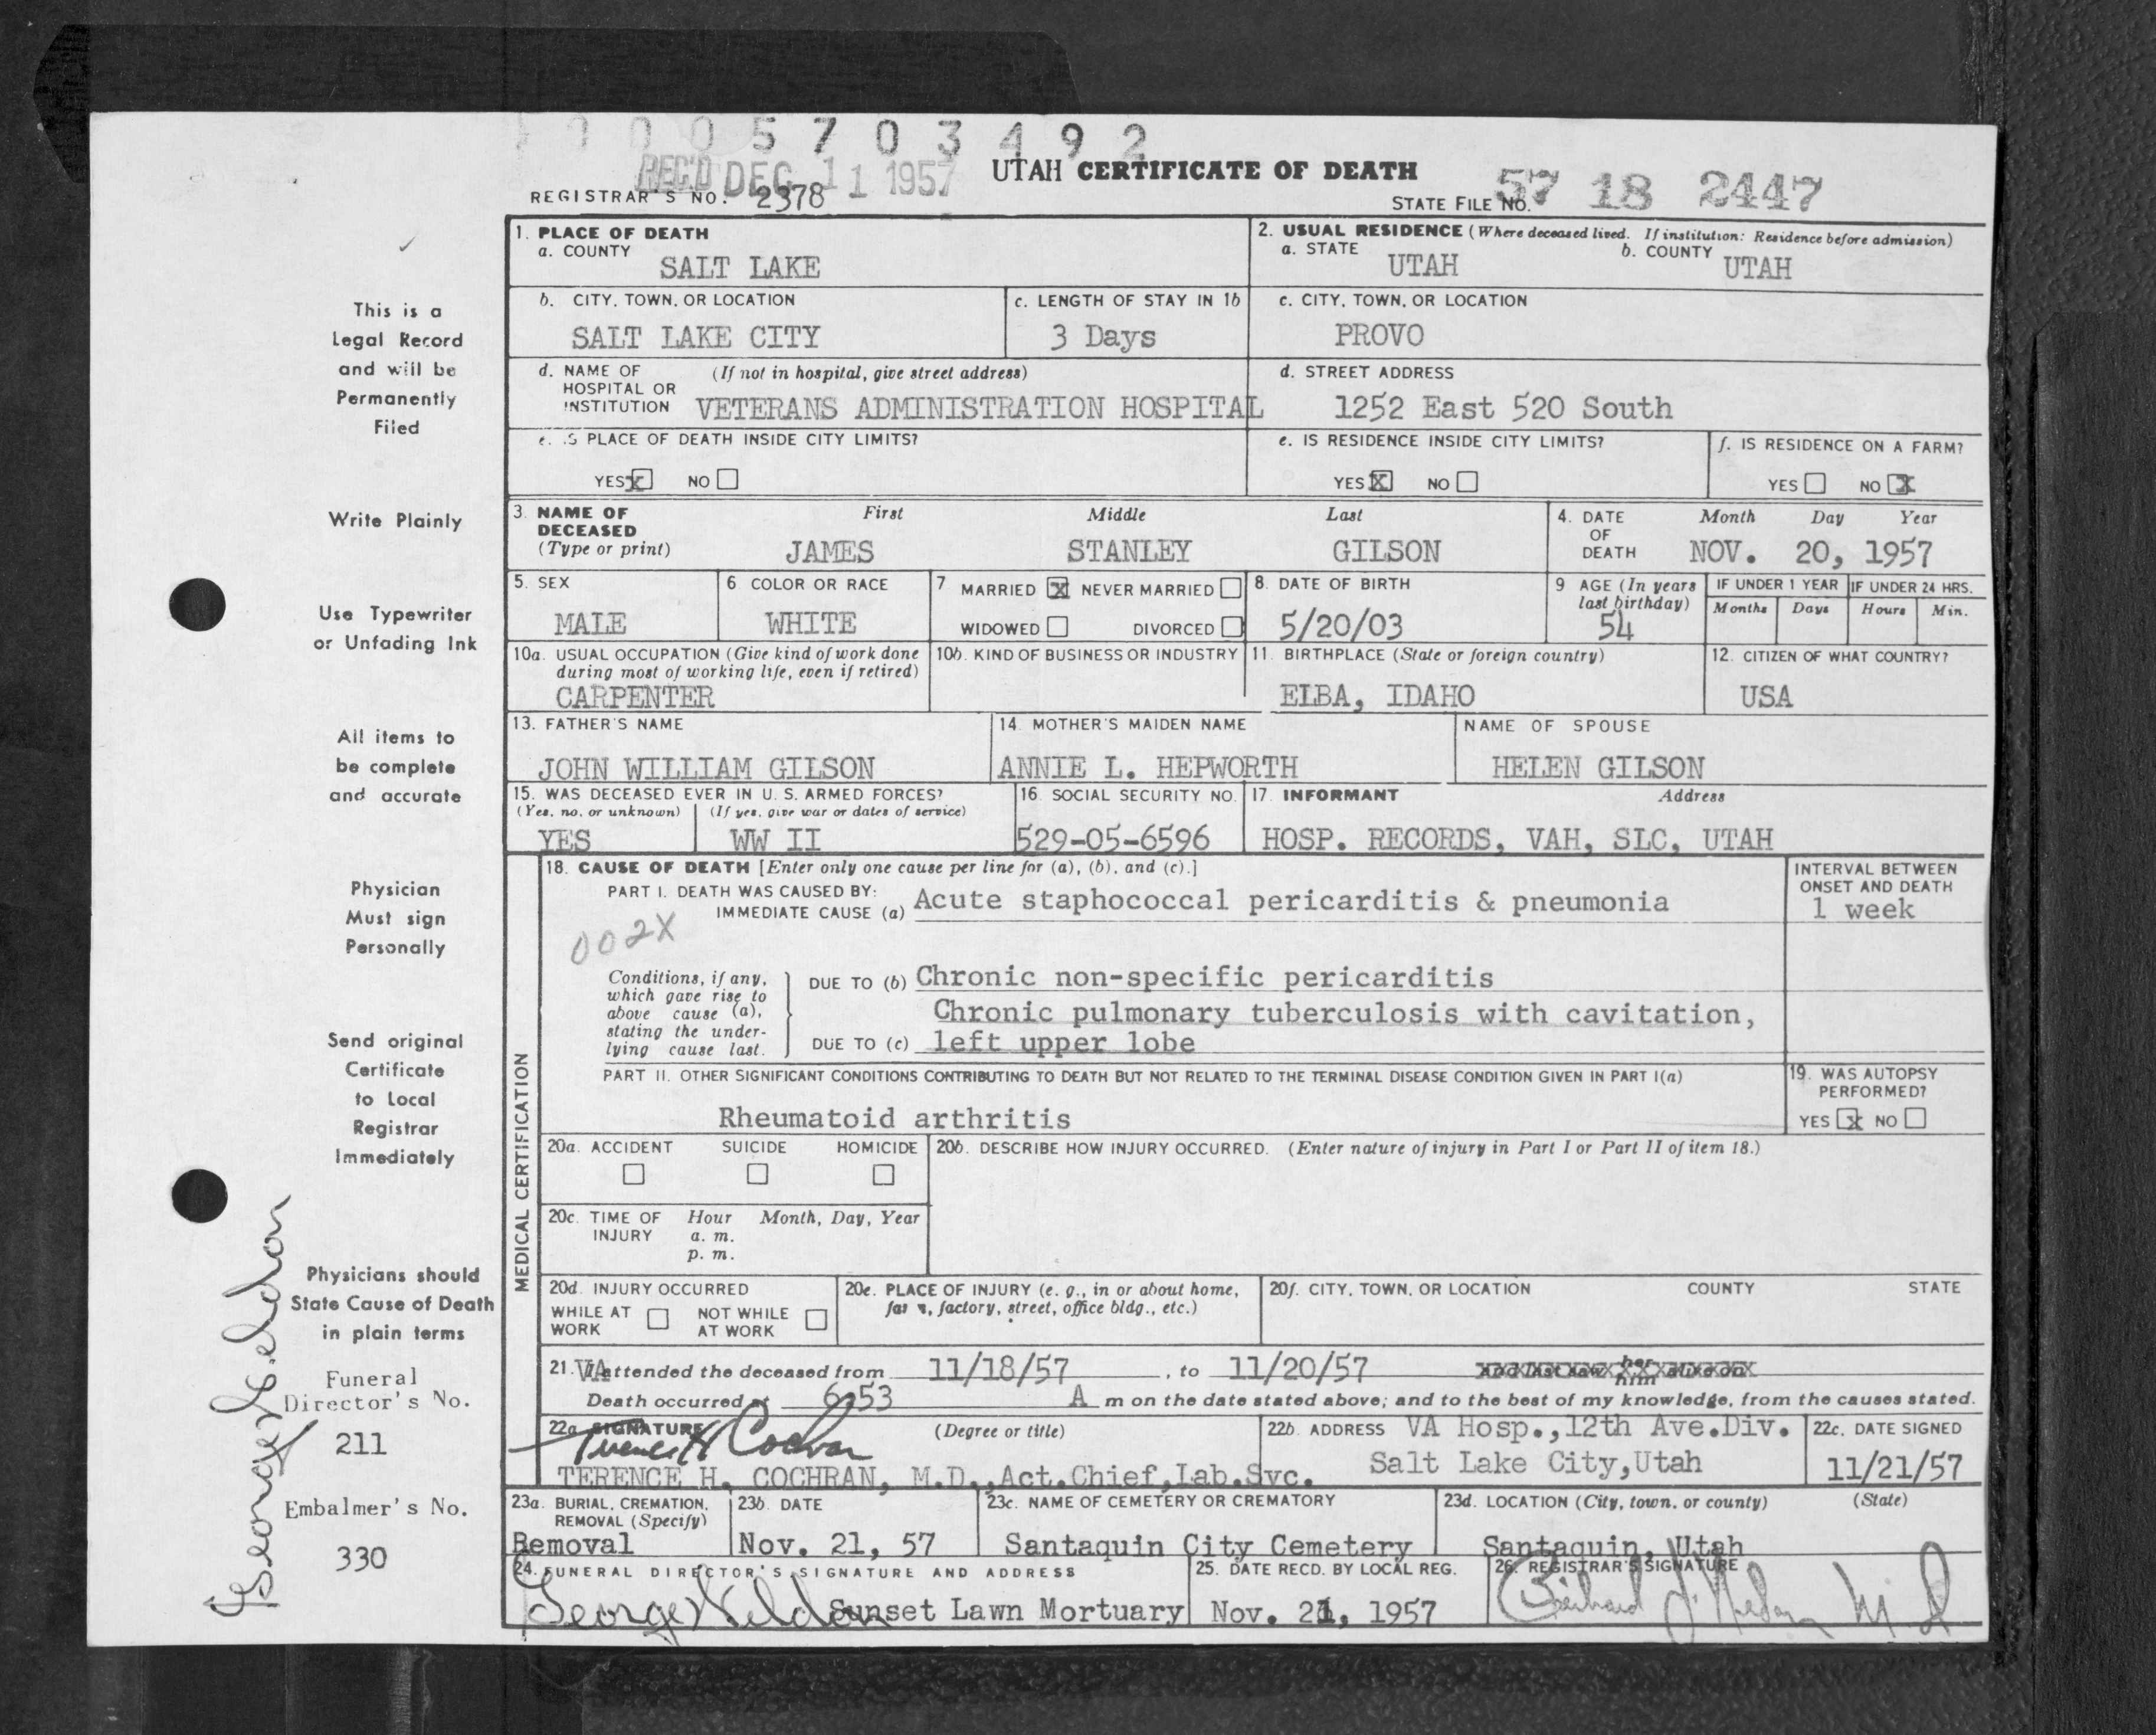 0 0 0 5 7 0 3 4 9 2
REC'D DEC 11 1957
UTAH CERTIFICATE OF DEATH
REGISTRAR'S NO. 2378
STATE FILE NO. 57 18 2447
1. PLACE OF DEATH
a. COUNTY
SALT LAKE
2. USUAL RESIDENCE (Where deceased lived. If institution: Residence before admission)
a. STATE UTAH b. COUNTY UTAH
b. CITY, TOWN, OR LOCATION
SALT LAKE CITY
c. LENGTH OF STAY IN 1b
3 Days
c. CITY, TOWN, OR LOCATION
PROVO
d. NAME OF (If not in hospital, give street address)
HOSPITAL OR
INSTITUTION VETERANS ADMINISTRATION HOSPITAL
d. STREET ADDRESS
1252 East 520 South
e. IS PLACE OF DEATH INSIDE CITY LIMITS?
YES X NO
e. IS RESIDENCE INSIDE CITY LIMITS?
YES X NO
f. IS RESIDENCE ON A FARM?
YES NO X
3. NAME OF DECEASED (Type or print)
First Middle Last
JAMES STANLEY GILSON
4. DATE OF DEATH
Month Day Year
NOV. 20, 1957
5. SEX
MALE
6 COLOR OR RACE
WHITE
7 MARRIED X NEVER MARRIED
WIDOWED DIVORCED
8. DATE OF BIRTH
5/20/03
9 AGE (In years last birthday)
54
IF UNDER 1 YEAR
Months Days
IF UNDER 24 HRS.
Hours Min.
10a. USUAL OCCUPATION (Give kind of work done
during most of working life, even if retired)
CARPENTER
10b. KIND OF BUSINESS OR INDUSTRY
11. BIRTHPLACE (State or foreign country)
ELBA, IDAHO
12. CITIZEN OF WHAT COUNTRY?
USA
13. FATHER'S NAME
JOHN WILLIAM GILSON
14. MOTHER'S MAIDEN NAME
ANNIE L. HEPWORTH
NAME OF SPOUSE
HELEN GILSON
15. WAS DECEASED EVER IN U. S. ARMED FORCES?
(Yes, no, or unknown) (If yes, give war or dates of service)
YES WW II
16. SOCIAL SECURITY NO.
529-05-6596
17. INFORMANT Address
HOSP. RECORDS, VAH, SLC, UTAH
MEDICAL CERTIFICATION
18. CAUSE OF DEATH [Enter only one cause per line for (a), (b), and (c).]
PART I. DEATH WAS CAUSED BY:
IMMEDIATE CAUSE (a) Acute staphococcal pericarditis & pneumonia
INTERVAL BETWEEN
ONSET AND DEATH
1 week
002X
Conditions, if any,
which gave rise to
above cause (a),
stating the under-
lying cause last.
DUE TO (b) Chronic non-specific pericarditis
Chronic pulmonary tuberculosis with cavitation,
DUE TO (c) left upper lobe
PART II. OTHER SIGNIFICANT CONDITIONS CONTRIBUTING TO DEATH BUT NOT RELATED TO THE TERMINAL DISEASE CONDITION GIVEN IN PART I(a)
Rheumatoid arthritis
19. WAS AUTOPSY
PERFORMED?
YES X NO
20a. ACCIDENT SUICIDE HOMICIDE
20b. DESCRIBE HOW INJURY OCCURRED. (Enter nature of injury in Part I or Part II of item 18.)
20c. TIME OF INJURY
Hour Month, Day, Year
a. m.
p. m.
20d. INJURY OCCURRED
WHILE AT WORK NOT WHILE AT WORK
20e. PLACE OF INJURY (e. g., in or about home,
farm, factory, street, office bldg., etc.)
20f. CITY, TOWN, OR LOCATION COUNTY STATE
21. VA attended the deceased from 11/18/57, to 11/20/57 and last saw her him alive on
Death occurred at 6:53 A m on the date stated above; and to the best of my knowledge, from the causes stated.
22a. SIGNATURE (Degree or title)
Terence H Cochran
TERENCE H. COCHRAN, M.D., Act.Chief,Lab.Svc.
22b. ADDRESS VA Hosp.,12th Ave.Div.
Salt Lake City,Utah
22c. DATE SIGNED
11/21/57
23a. BURIAL, CREMATION,
REMOVAL (Specify)
Removal
23b. DATE
Nov. 21, 57
23c. NAME OF CEMETERY OR CREMATORY
Santaquin City Cemetery
23d. LOCATION (City, town, or county) (State)
Santaquin, Utah
24. FUNERAL DIRECTOR'S SIGNATURE AND ADDRESS
Sunset Lawn Mortuary
25. DATE RECD. BY LOCAL REG.
Nov. 21, 1957
26. REGISTRAR'S SIGNATURE
This is a
Legal Record
and will be
Permanently
Filed
Write Plainly
Use Typewriter
or Unfading Ink
All items to
be complete
and accurate
Physician
Must sign
Personally
Send original
Certificate
to Local
Registrar
Immediately
Physicians should
State Cause of Death
in plain terms
Funeral
Director's No.
211
Embalmer's No.
330